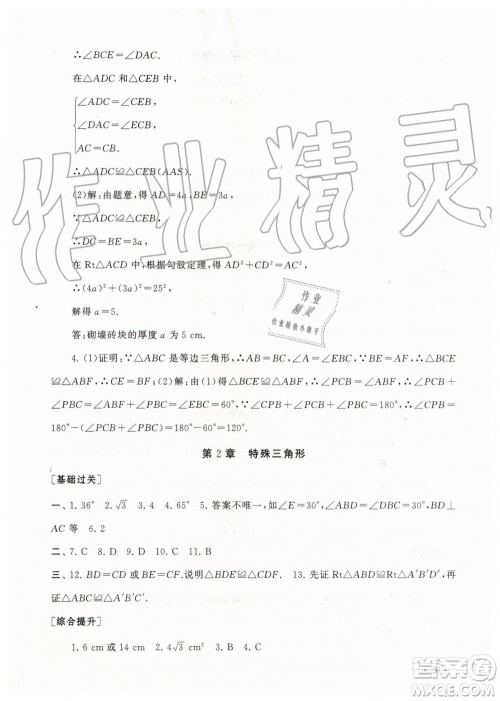 ∴∠BCE=∠DAC.
在△ADC 和△CEB 中，
∠ADC=∠CEB,
∠DAC=∠ECB,
AC=CB.
∴△ADC≌△CEB(AAS).
(2)解：由题意，得 AD=4a，BE=3a，
∵△ADC≌△CEB，
∴DC=BE=3a.
在 Rt△ACD 中，根据勾股定理，得 AD²+CD²=AC².
∴(4a)²+(3a)²=25².
解得 a=5.
答：砌墙砖块的厚度 a 为 5 cm.
4. (1)证明：∵△ABC 是等边三角形，∴AB=BC，∠A=∠EBC，∴△BCE
≌△ABF，∴CE=BF；(2)解：∵由(1)知△BCE≌△ABF，∴∠PCB=∠ABF，∴∠PCB+
∠PBC=∠ABF+∠PBC=60°，即∠PBC+∠PCB=60°，∴∠BPC=
180°-(∠PCB+∠PBC)=180°-60°=120°.
第 2 章 特殊三角形
[基础过关]
一、1. 36° 2. √3 3. 4 4. 65° 5. 答案不唯一，如∠E=30°，∠ABD=30°，BD⊥
AC 等 6. 2
二、7. C 8. D 9. D 10. C 11. C
三、12. BD=CD 或 BE=CE，说明△ABD≌△ACD 13. 先证 Rt△ABD≌Rt△A′B′D′，再
证△ABC≌△A′B′C′
[综合提升]
1. 6 cm 或 14 cm 2. 4√3 cm² 3. B 4. C
作业精灵
作业
精灵
检查作业小助手